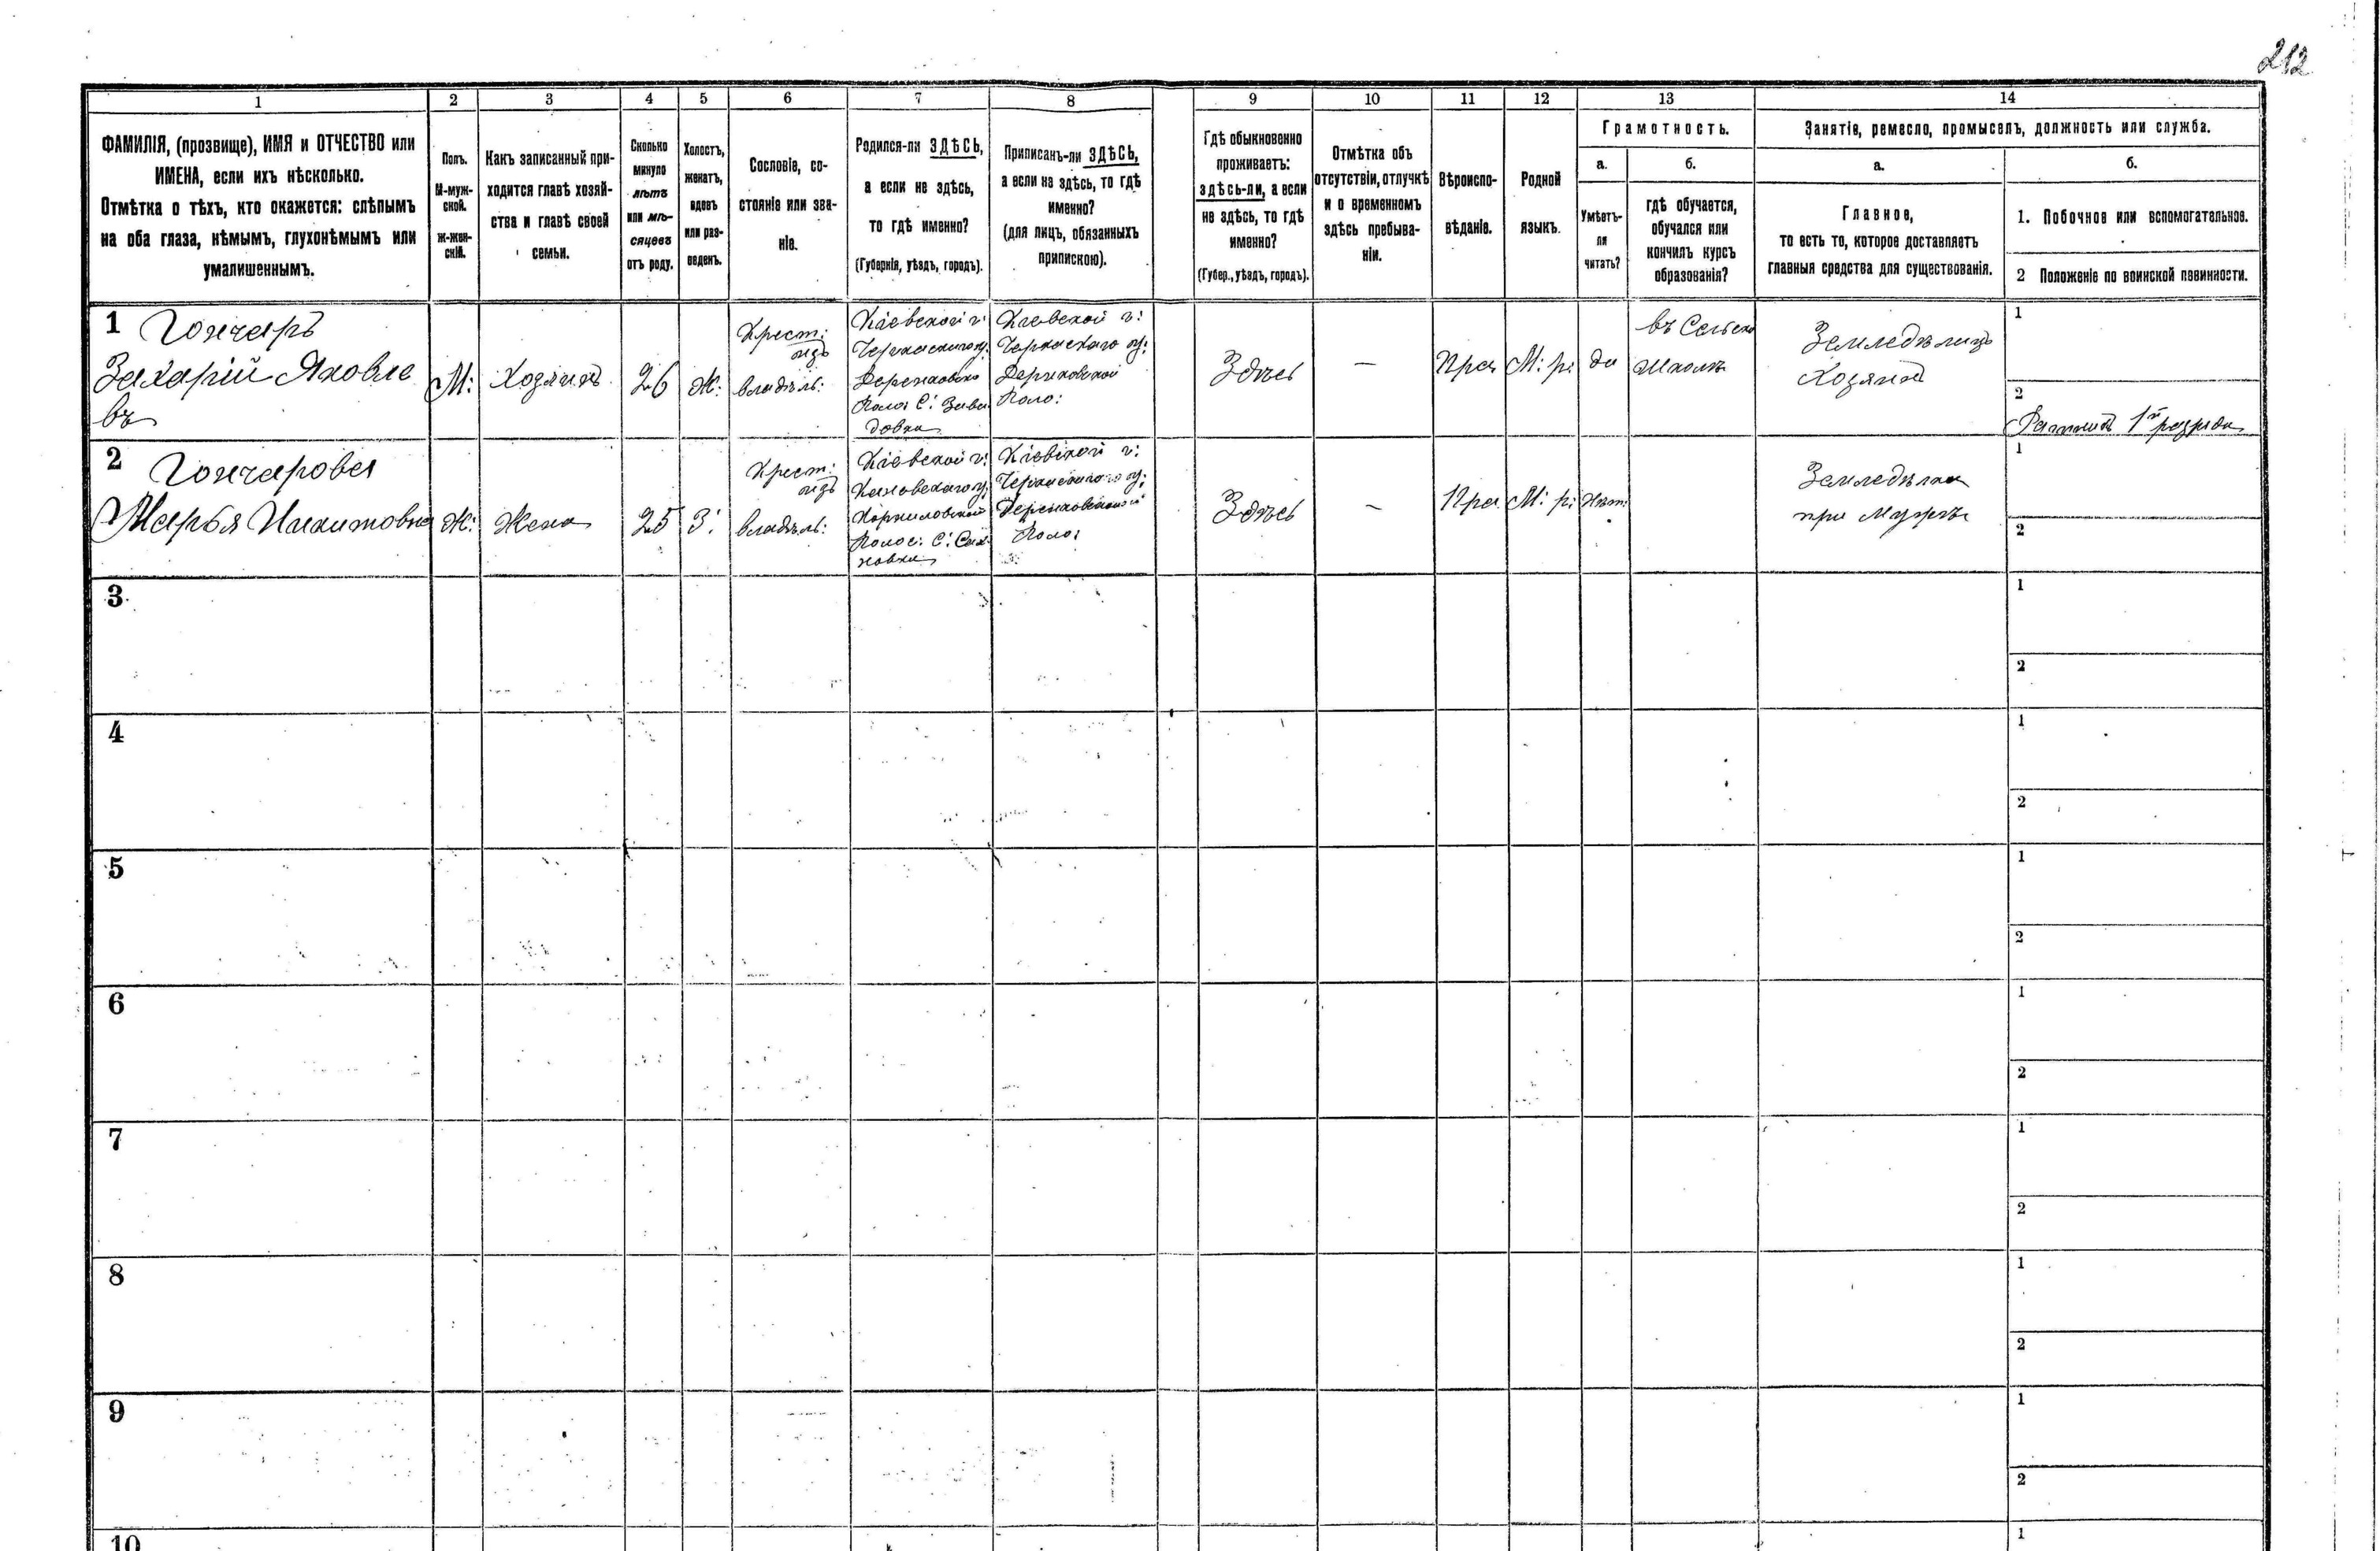 212
1 2 3 4 5 6 7 8 9 10 11 12 13 14
ФАМИЛІЯ, (прозвище), ИМЯ и ОТЧЕСТВО или
ИМЕНА, если ихъ нѣсколько.
Отмѣтка о тѣхъ, кто окажется: слѣпымъ
на оба глаза, нѣмымъ, глухонѣмымъ или
умалишеннымъ.
Полъ.
М-муж-
ской.
Ж-жен-
скій.
Какъ записанный при-
ходится главѣ хозяй-
ства и главѣ своей
семьи.
Сколько
минуло
лѣтъ
или мѣ-
сяцевъ
отъ роду.
Холостъ,
женатъ,
вдовъ
или раз-
веденъ.
Сословіе, со-
стояніе или зва-
ніе.
Родился-ли ЗДѢСЬ,
а если не здѣсь,
то гдѣ именно?
(Губернія, уѣздъ, городъ).
Приписанъ-ли ЗДѢСЬ,
а если не здѣсь, то гдѣ
именно?
(для лицъ, обязанныхъ
припискою).
Гдѣ обыкновенно
проживаетъ:
здѣсь-ли, а если
не здѣсь, то гдѣ
именно?
(Губер., уѣздъ, городъ).
Отмѣтка объ
отсутствіи, отлучкѣ
и о временномъ
здѣсь пребыва-
ніи.
Вѣроиспо-
вѣданіе.
Родной
языкъ.
Грамотность.
а.
Умѣетъ-
ли
читать?
б.
гдѣ обучается,
обучался или
кончилъ курсъ
образованія?
Занятіе, ремесло, промыселъ, должность или служба.
а.
Главное,
то есть то, которое доставляетъ
главныя средства для существованія.
б.
1. Побочное или вспомогательное.
2 Положеніе по воинской повинности.
1 Гончаръ
Захарій Яковле
въ
М:
Хозяинъ
26
Ж:
Крест:
изъ
владѣль:
Кіевской г:
Черкаскаго у:
Деренковско
Воло: С: Зава
довка
Кіевской г:
Черкаскаго у:
Деренковской
Воло:
Здѣсь
—
Пра
М: р:
да
въ Сельско
школѣ
Земледѣлецъ
Хозяинъ
1
2
Ратникъ 1й разряда
2 Гончарова
Марья Никитовна
Ж:
Жена
25
З:
Крест:
изъ
владѣль:
Кіевской г:
Каневскаго у:
Корниловской
Волос: С: Сах
новка
Кіевской г:
Черкаскаго у:
Деренковской
Воло:
Здѣсь
—
Пра
М: р:
Нѣт:
Земледѣлка
при Мужѣ
1
2
3
1
2
4
1
2
5
1
2
6
1
2
7
1
2
8
1
2
9
1
2
10
1